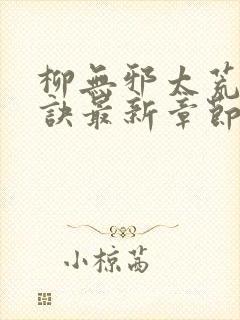 柳無邪太荒
訣最新章節
小椋茜